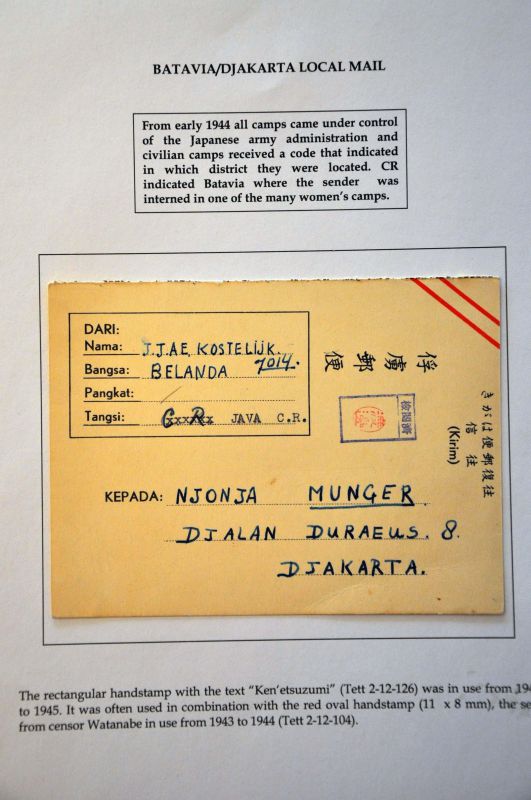 BATAVIA/DJAKARTA LOCAL MAIL
From early 1944 all camps came under control
of the Japanese army administration and
civilian camps received a code that indicated
in which district they were located. CR
indicated Batavia where the sender was
interned in one of the many women's camps.
DARI:
Nama: J.J.A.E. KOSTELIJK.
Bangsa: BELANDA 7014.
Pangkat:
Tangsi: CxxRx JAVA C.R.
俘虜郵便
検閲済
往復郵便はがき
往信
(Kirim)
KEPADA: NJONJA MUNGER
DJALAN DURAEUS. 8.
DJAKARTA.
The rectangular handstamp with the text "Ken'etsuzumi" (Tett 2-12-126) was in use from
to 1945. It was often used in combination with the red oval handstamp (11 x 8 mm), the
from censor Watanabe in use from 1943 to 1944 (Tett 2-12-104).